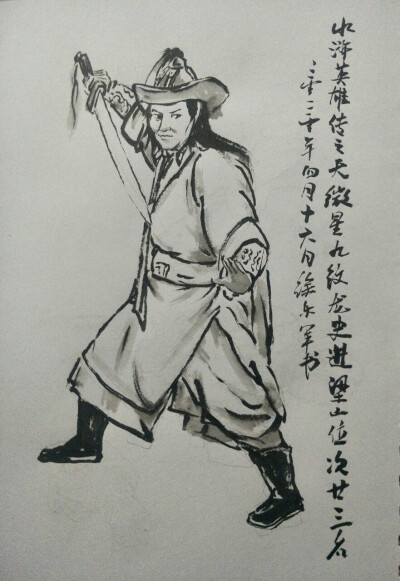 水浒英雄传之天微星九纹龙史進梁山位次廿三名
二零二十年四月十六日徐军书